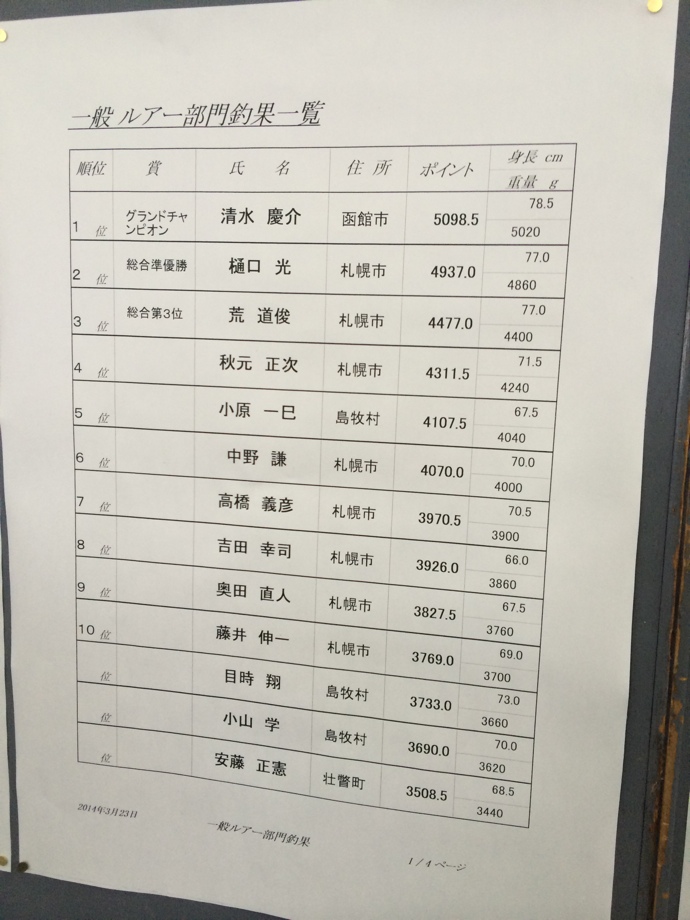 一般 ルアー部門釣果一覧
順位 賞 氏 名 住 所 ポイント 身長 cm
重量 g
1 位 グランドチャンピオン 清水 慶介 函館市 5098.5 78.5
5020
2 位 総合準優勝 樋口 光 札幌市 4937.0 77.0
4860
3 位 総合第3位 荒 道俊 札幌市 4477.0 77.0
4400
4 位 秋元 正次 札幌市 4311.5 71.5
4240
5 位 小原 一巳 島牧村 4107.5 67.5
4040
6 位 中野 謙 札幌市 4070.0 70.0
4000
7 位 高橋 義彦 札幌市 3970.5 70.5
3900
8 位 吉田 幸司 札幌市 3926.0 66.0
3860
9 位 奥田 直人 札幌市 3827.5 67.5
3760
10 位 藤井 伸一 札幌市 3769.0 69.0
3700
位 目時 翔 島牧村 3733.0 73.0
3660
位 小山 学 島牧村 3690.0 70.0
3620
位 安藤 正憲 壮瞥町 3508.5 68.5
3440
2014年3月23日 一般ルアー部門釣果 1/4ページ